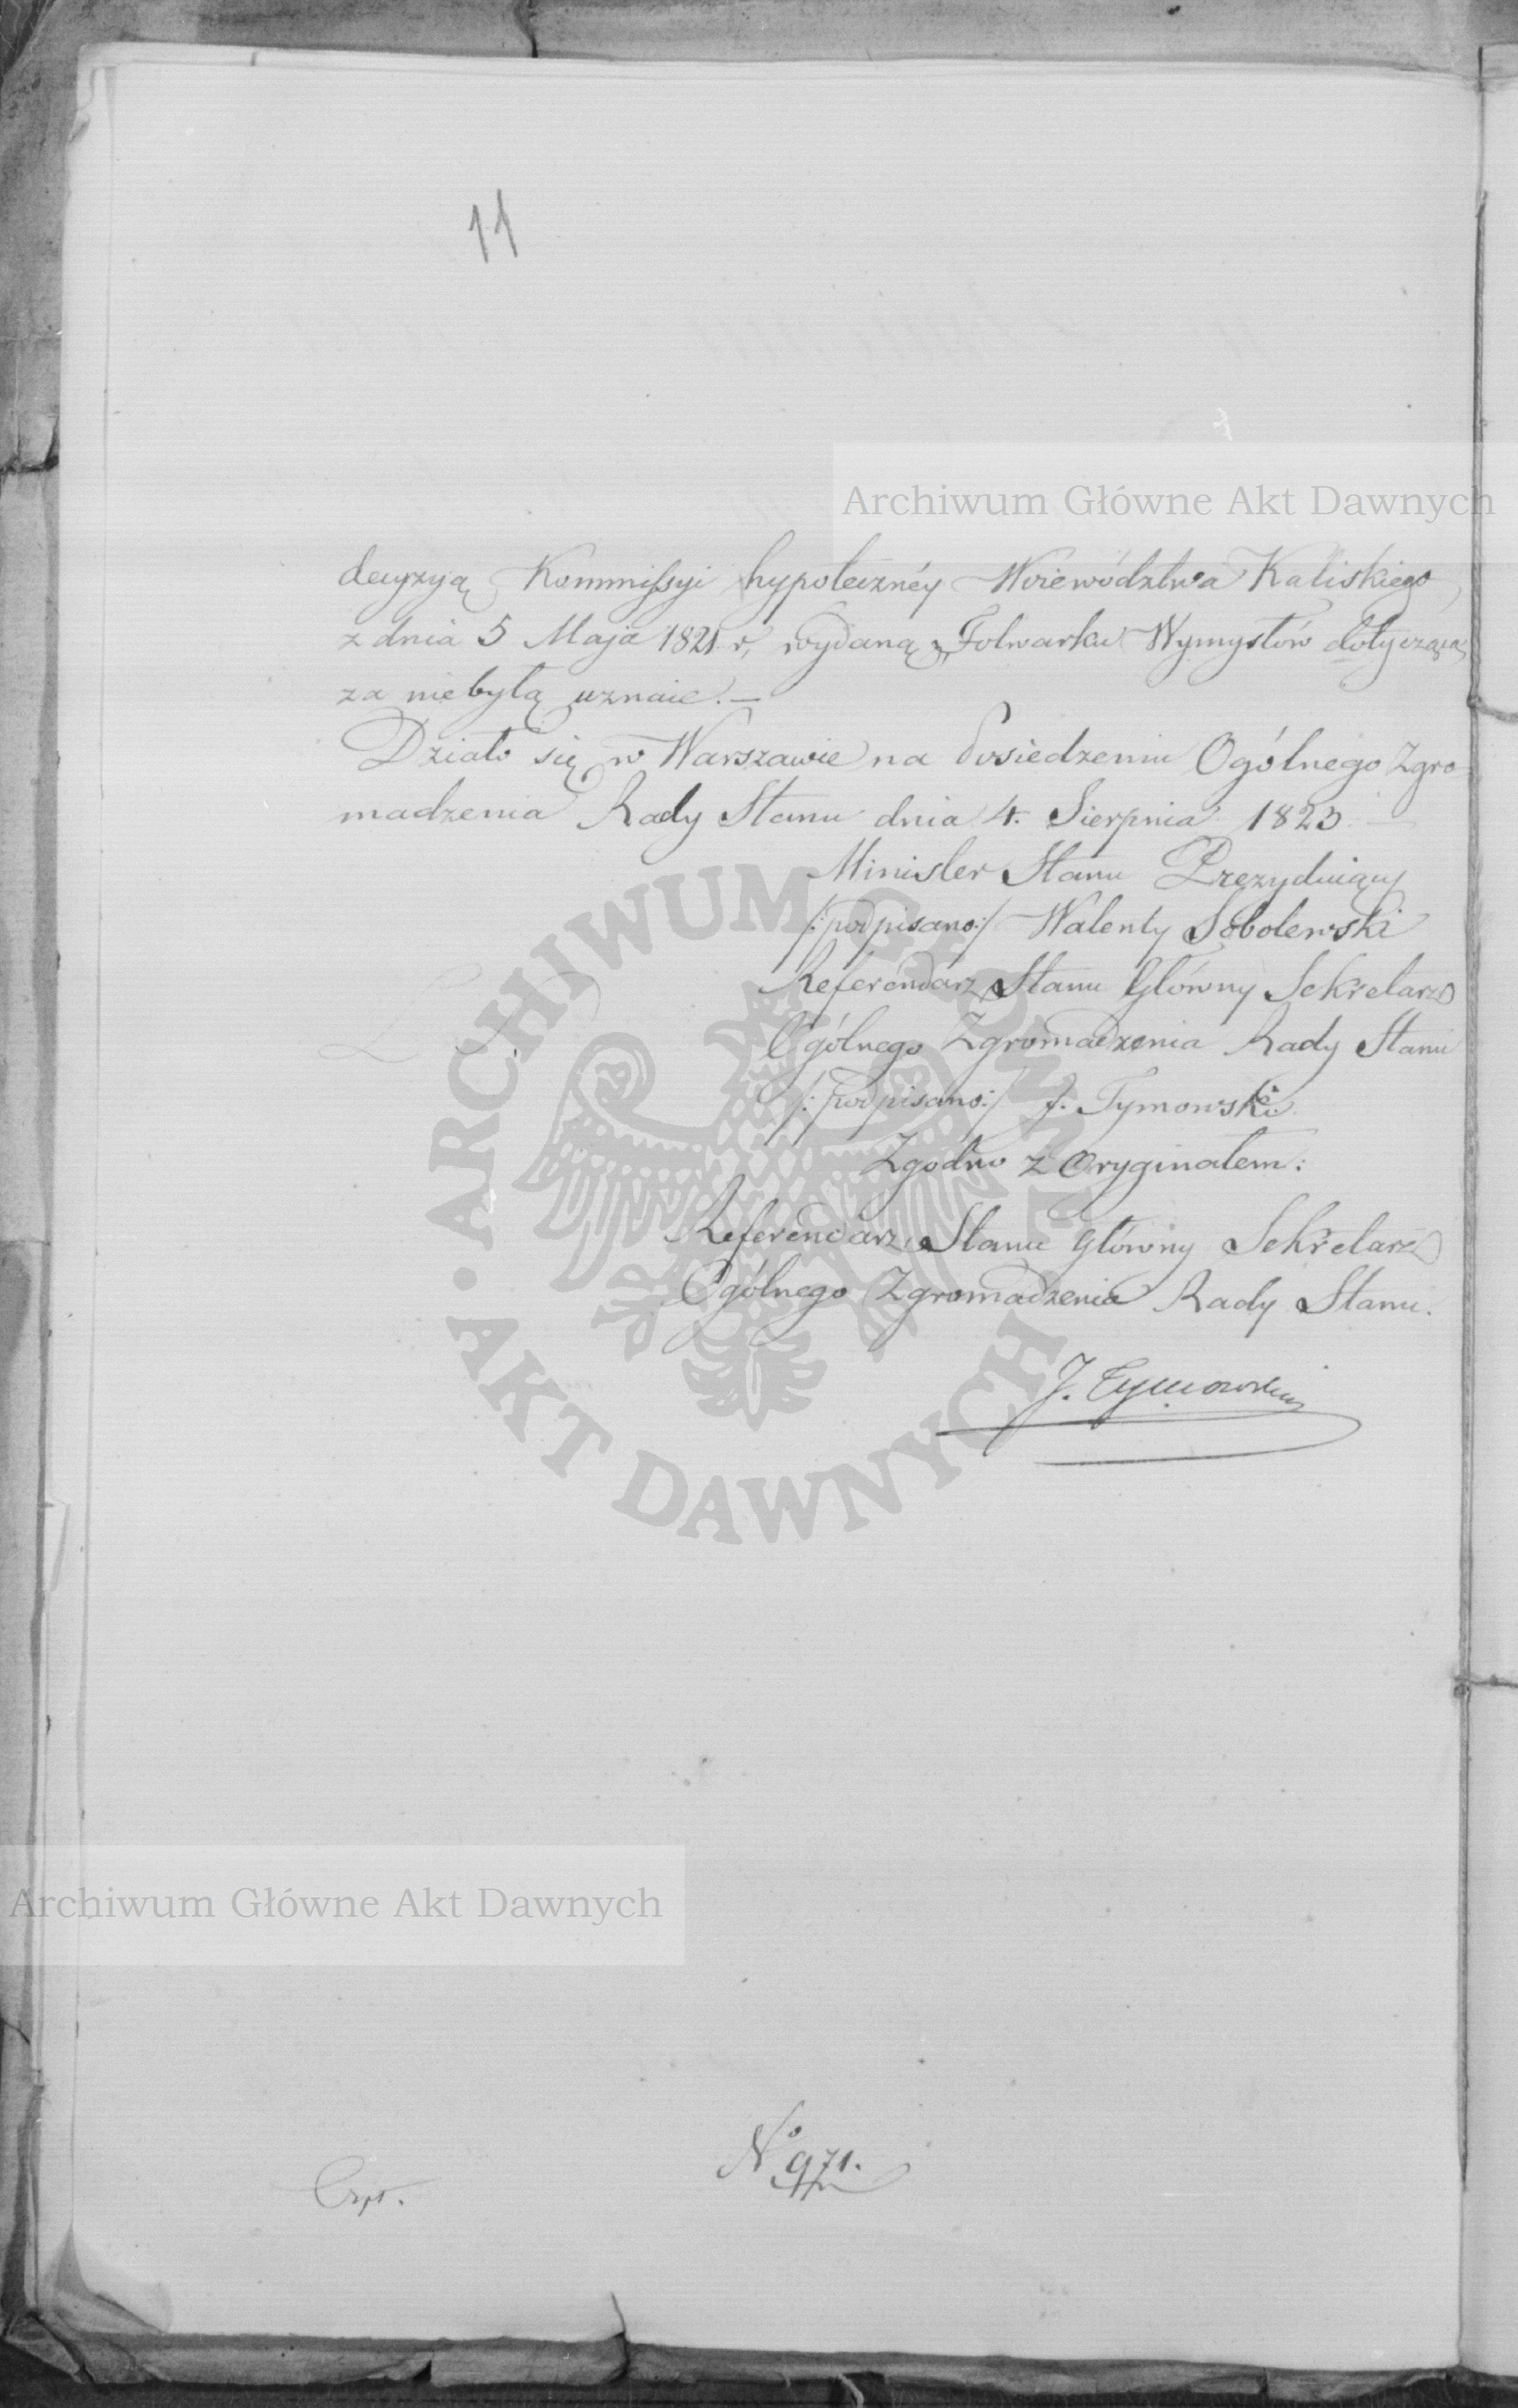 11
Archiwum Główne Akt Dawnych
decyzyą Kommissyi hypoteczney Woiewództwa Kaliskiego,
z dnia 5 Maja 1821 r, wydaną Folwarku Wymysłów dotyczącą,
za niebyłą uznaie. —
Działo się w Warszawie na Posiedzeniu Ogólnego Zgro
madzenia Rady Stanu dnia 4. Sierpnia 1823
Minister Stanu Prezyduiący
/:podpisano:/ Walenty Sobolewski
Referendarz Stanu Główny Sekretarz
Ogólnego Zgromadzenia Rady Stanu
/:podpisano:/ J. Tymowski.
Zgodno z Oryginałem:
Referendarz Stanu Główny Sekretarz
Ogólnego Zgromadzenia Rady Stanu.
J. Tymowski
ARCHIWUM GŁÓWNE · AKT DAWNYCH ·
Archiwum Główne Akt Dawnych
No 971.